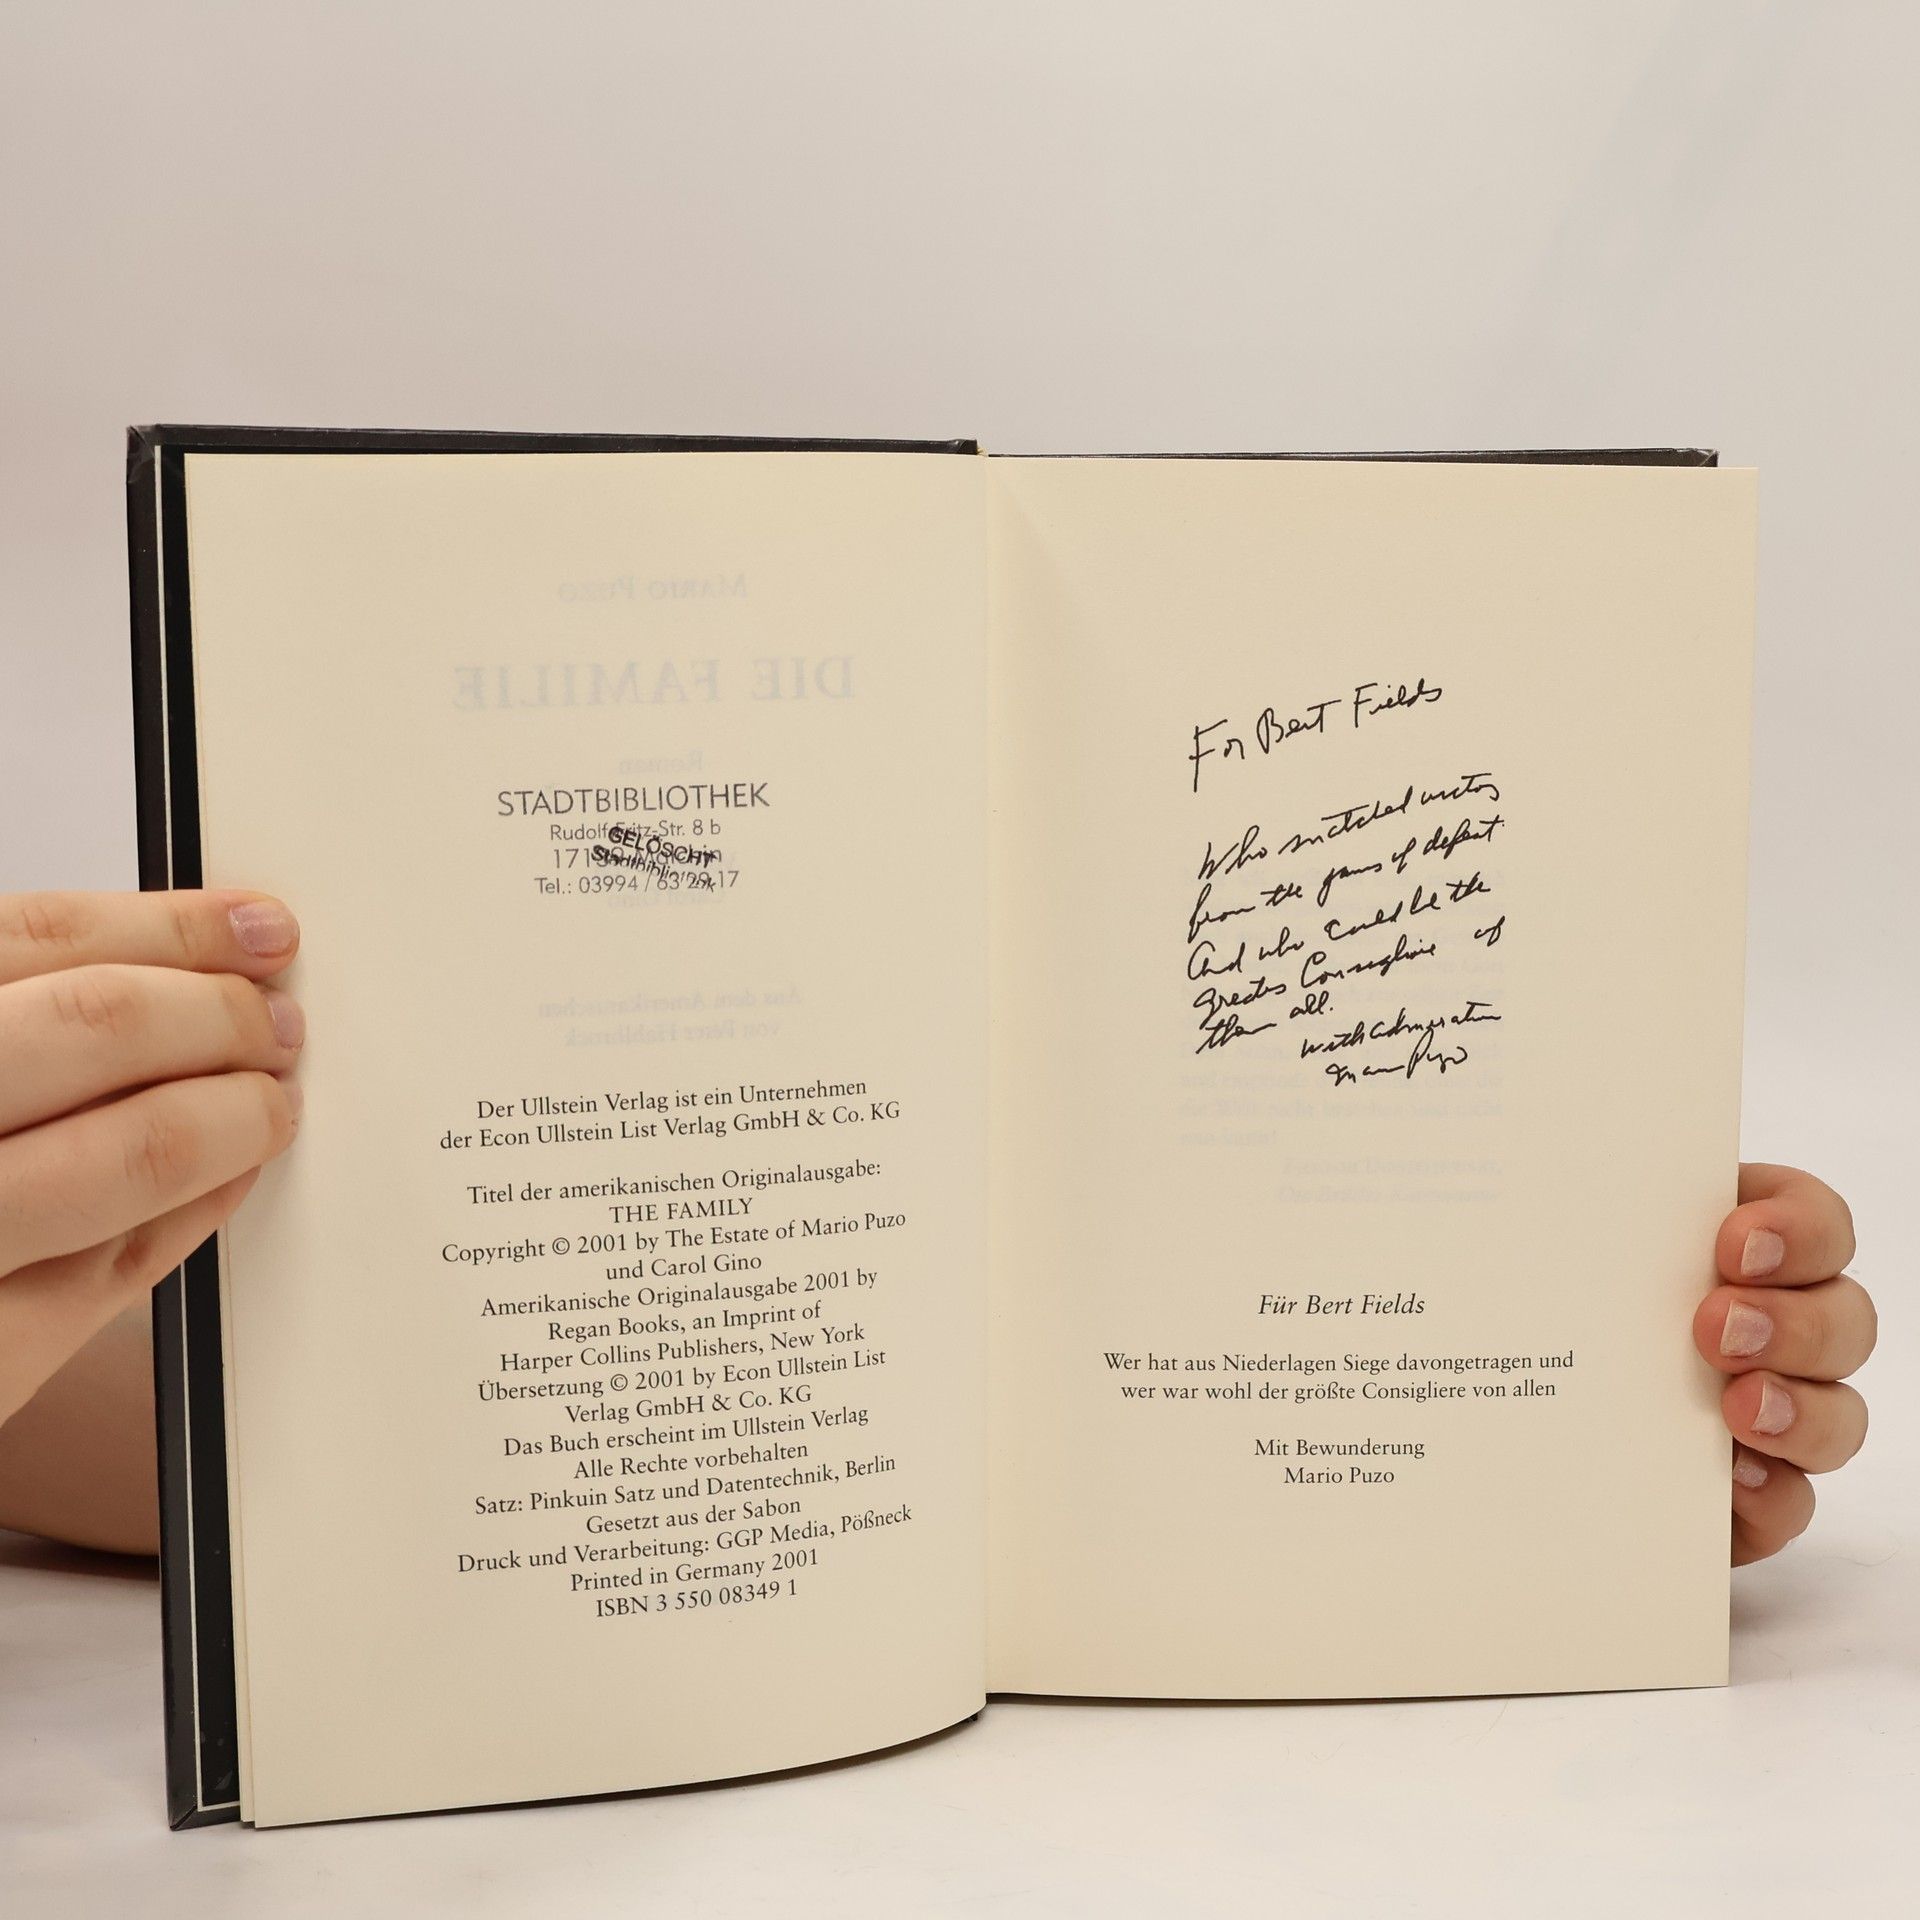 STADTBIBLIOTHEK
Rudolf-Fritz-Str. 8 b
17139 Malchin
Tel.: 03994 / 63 29 17
GELÖSCHT
Der Ullstein Verlag ist ein Unternehmen
der Econ Ullstein List Verlag GmbH & Co. KG
Titel der amerikanischen Originalausgabe:
THE FAMILY
Copyright © 2001 by The Estate of Mario Puzo
und Carol Gino
Amerikanische Originalausgabe 2001 by
Regan Books, an Imprint of
Harper Collins Publishers, New York
Übersetzung © 2001 by Econ Ullstein List
Verlag GmbH & Co. KG
Das Buch erscheint im Ullstein Verlag
Alle Rechte vorbehalten
Satz: Pinkuin Satz und Datentechnik, Berlin
Gesetzt aus der Sabon
Druck und Verarbeitung: GGP Media, Pößneck
Printed in Germany 2001
ISBN 3 550 08349 1
For Bert Fields
Who snatched victory
from the jaws of defeat.
And who could be the
greatest Consigliere of
them all.
with admiration
Mario Puzo
Für Bert Fields
Wer hat aus Niederlagen Siege davongetragen und
wer war wohl der größte Consigliere von allen
Mit Bewunderung
Mario Puzo